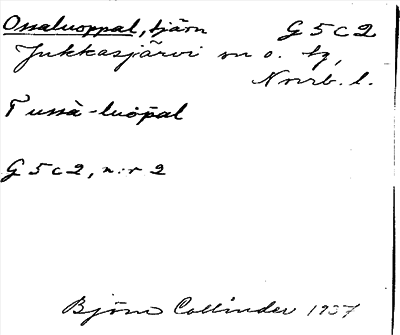 Ossaluoppal, tjärn G 5 c 2
Jukkasjärvi sn o. tg,
Norrb. l.
Tussà-luòpal
G 5 c 2, n:r 2
Björn Collinder 1937